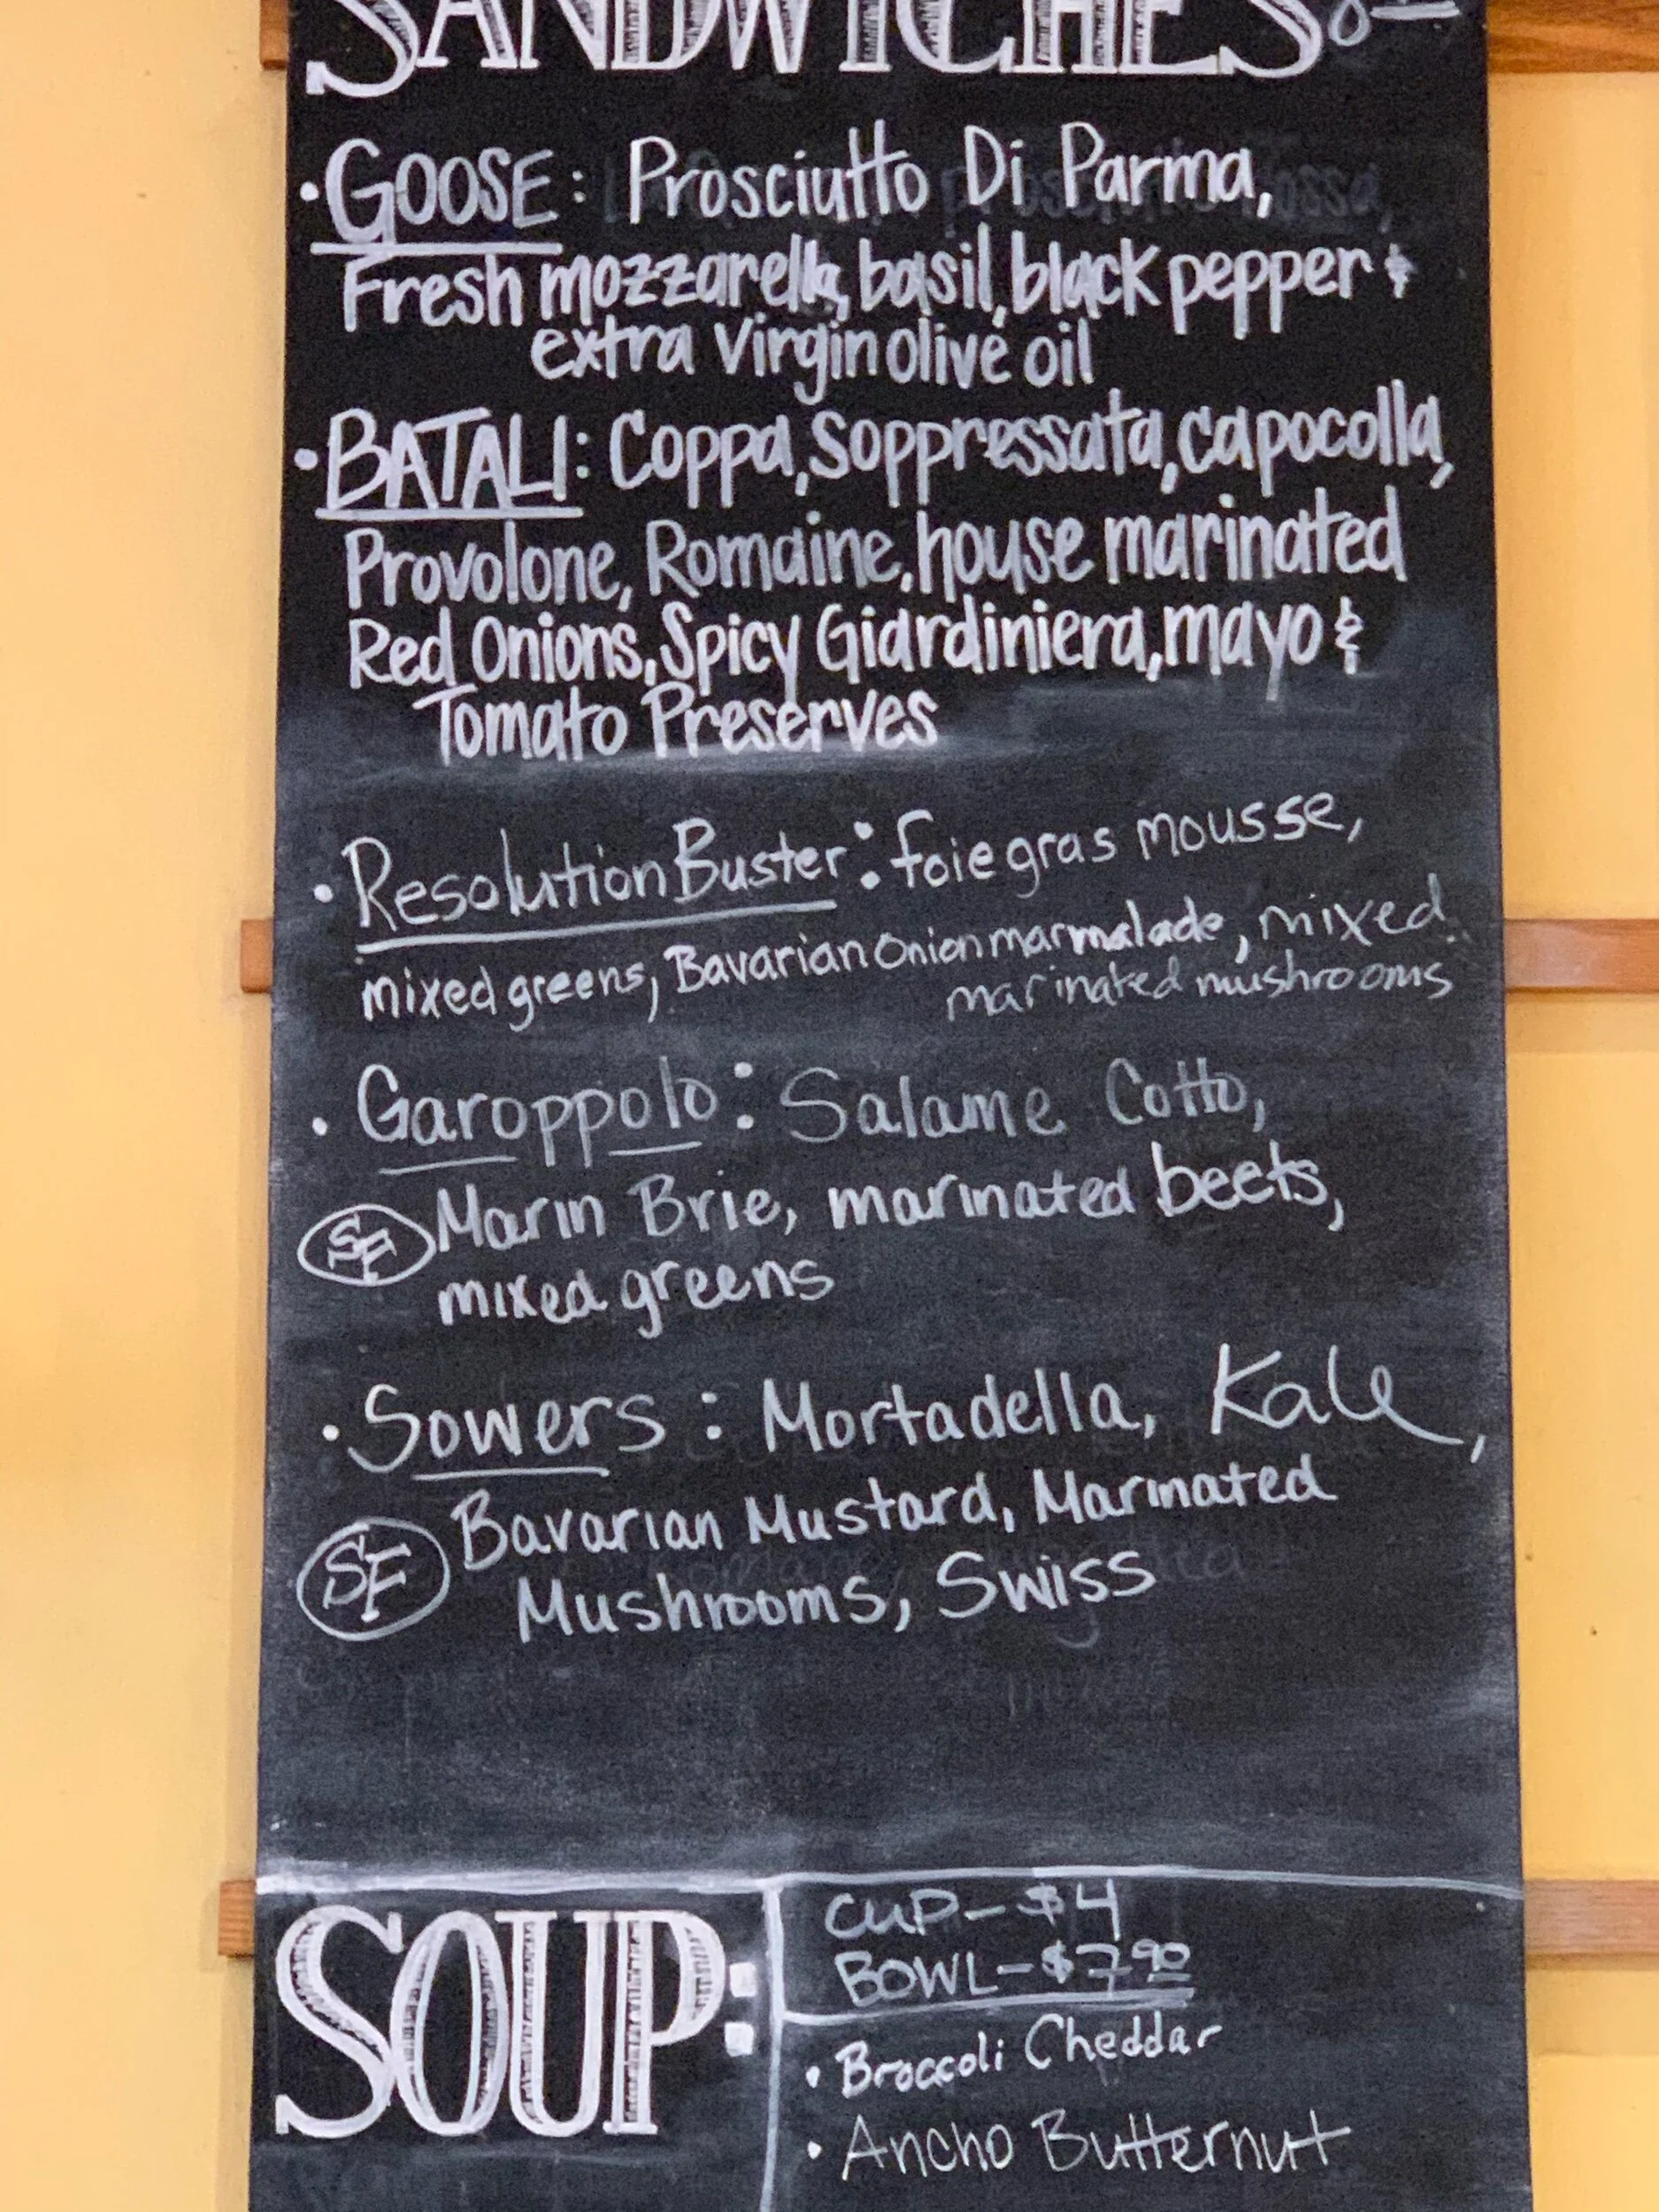 SANDWICHES
• GOOSE: Prosciutto Di Parma,
Fresh mozzarella, basil, black pepper &
extra Virgin olive oil
• BATALI: Coppa, Soppressata, capocolla,
Provolone, Romaine, house marinated
Red Onions, Spicy Giardiniera, mayo &
Tomato Preserves
• Resolution Buster: foie gras mousse,
mixed greens, Bavarian Onion marmalade, mixed
marinated mushrooms
• Garoppolo: Salame Cotto,
SF Marin Brie, marinated beets,
mixed greens
• Sowers: Mortadella, Kale,
SF Bavarian Mustard, Marinated
Mushrooms, Swiss
SOUP:
CUP-$4
BOWL-$7.90
• Broccoli Cheddar
• Ancho Butternut